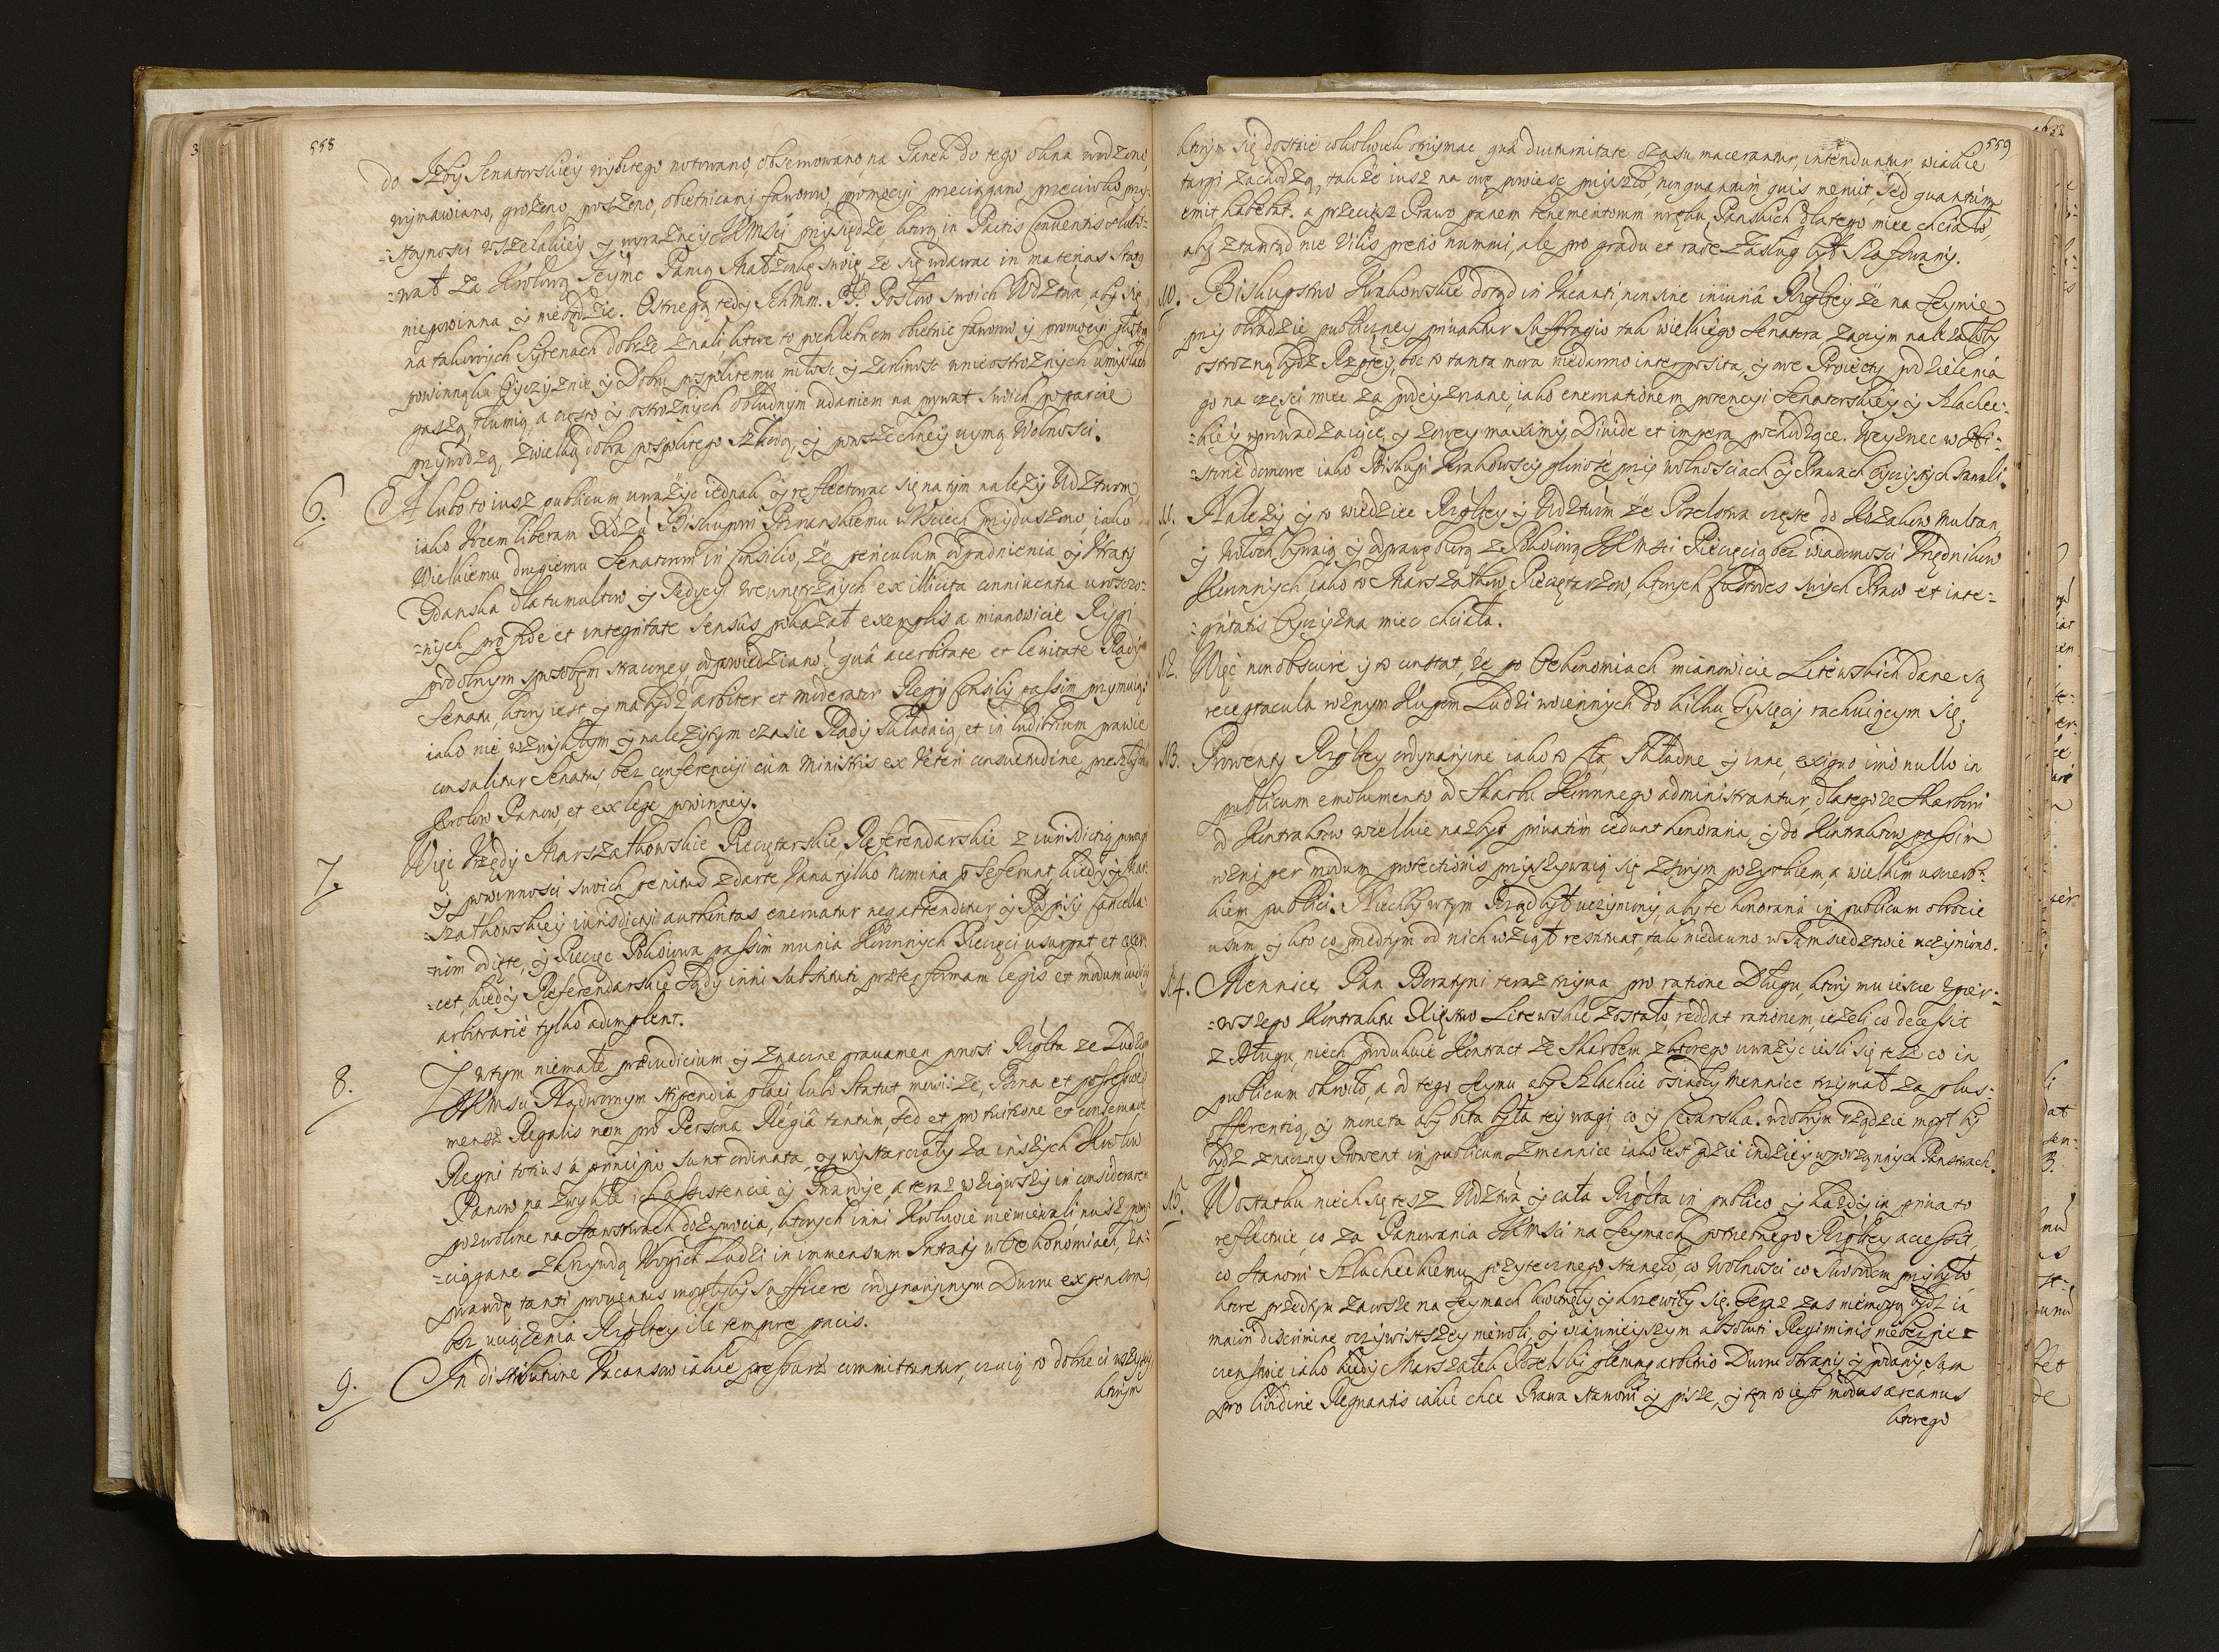 558
do Izby Senatorskiey wybitego notowano, obserwowano, na Ganek do tego okna wodzono,
wymawiano, grożono proszono, obietnicami faworow, promocyi przeciągano przeciwko przy-
=stoyności wszelakiey y wyraźney JKMsci przysiędze, ktorą in Pactis Conventis oslubi-
=wał za Krolową Jeymc Panią Małżonkę swoię, że się wdawac in materias status
niepowinna y niebędzie. Ostrzegą tedy Ichmm. PP. Posłow swoich Wdztwa, aby się
na takowych Syrenach dobrze znali, ktore to pochlebnem obietnic faworow y promocyi
powinną ku Oyczyznie y Dobru pospolitemu miłosc y zarliwosc w nieostroznych umysłach
gaszą, tłumią, a często y ostrożnych obłudnym udaniem na prywat swoich poparcie
przywodzą, z wielką dobra pospolitego szkodą, y powszechney uymą Wolnosci.
6. A lubo to iusz publicum uważyc iednak y reflectowac się na tym należy Wdztwom
iako Vocem liberam Xdzu Biskupowi Poznanskiemu w Sciech przyduszono, iako
Wielkiemu drugiemu Senatorowi in Consilio, że periculum odpadnienia y straty
Gdanska dla tumultow y Sedycyi wewnętrznych ex illicita conniventia uroszczo-
=nych pro fide et integritate sensûs pokazał exemplis a mianowicie Rygi
podobnym sposobem straconey, odpowiedziano; quâ acerbitate et levitate Rady
Senatu, ktory iest y ma bydz arbiter et moderator Regij Consilij passim przymuią,
iako nie w zwykłym y należytym czasie Rady składaią, et in ludibrium prawie
consulitur Senatus, bez conferencyi cum Ministris ex veteri consuetudine przeszłych
Krolow Panow, et ex lege powinney.
7. Więc Urzędy Marszałkowskie Pieczętarskie, Referendarskie z iurisdictią
y powinnosci swoich penitus zdarte, Vana tylko Nomina po se ferunt, kiedy y Mar-
=szałkowskiey iurisdictiey authoritas enervatur neq attenditur, y Podpisy Cancella-
=riom odięte, y Pieczęc Pokoiowa passim munia Koronnych Pieczęci usurpat et exer-
=cet, kiedy Referendarskie Sądy inni substituti praeter formam legis et modum iudicij
arbitrarie tylko adimplent.
8. I w tym niemałe praeiudicium y znaczne gravamen ponosi Rzplta ze Ludziom
JKMsci Nadwornym stipendia płaci, lubo Statut mowi: że, Bona et possessiones
mensae Regalis non pro Persona Regiâ tantum, sed et pro tuitione et conservatione
Regni totius à principio sunt ordinata, y wystarczały za inszych Krolow
Panow na zwykłą ich assistencię y Gwardye, a teraz wziąwszy in considerationem
pozwolone na Starostwach dożywocia, ktorych inni Krolowie niemiewali nuż
=ciągane z krzywdą ubogich Ludzi in immensum Intraty w Oekonomiach, za-
prawdę tanti proventus mogłyby sufficere ordynaryinym Dworu expensom
bez uciążenia Rzpltey ile tempore pacis.
9. In distributione Vacansow iakie pressurae committuntur, czuią to dobrze ci wszyscy
ktorym
559
ktorym się dostaie cokolwiek otrzymac quâ diuturnitate czasu macerantur, intenduntur, wiakie
targi zachodzą, tak że iusz na onę powiesc przyszło, non quantum quis meruit, sed quantum
emit habebit. a przeciesz Prawo panem benementorum w ręku Panskich dlatego miec chciało,
aby ztamtąd nie vilis pretio nummi, ale pro gradu et ratione zasług był szafowany.
10. Biskupstwo Krakowskie dotąd in Vacanti, non sine iniuriâ Rzpltey że na Seymie
przy obradzie publiczney privatur suffragio tak wielkiego Senatora, zaczym należałoby
ostrożną bydz Rzptey, bo to tanta mora niedarmo interposita, y owe Proiecty podzielenia
go na części miec za podeyzrane, iako enervationem potencyi Senatorskiey y Szlachec-
=kiey wprowadzaiące, y z owey maximy, Divide et impera pochodzące. Weyzrec w Hi-
=storie domowe iako Biskupi Krakowscy gorliwie przy wolnosciach y Prawach Oyczystych stawali.
11. Należy y to wiedziec Rzpltey y Wdztwom że Poselstwa częste do Kozakow Multan
y Wołoch bywaią y odprawę biorą z Pokoiową JKMsci Pieczęcią bez wiadomosci Urzędnikow
Koronnych, iako to Marszałkow, Pieczętarzow, ktorych Custodes swych Praw et inte-
=gritatis Oyczyzna miec chciała.
12. Więc non obscure y to constat, że po Oekonomiach mianowicie Litewskich dane są
receptacula roznym Kupom Ludzi woiennych do kilku Tysięcy rachuiącym się.
13. Prowenty Rzpltey ordynaryine iako to Cła, Składne y inne, exiguo imò nullo in
publicum emolumento od Skarbu Koronnego administrantur, dlatego ze Skarbowi
od Kontraktow wielkie nazbyt privatim cedunt honoraria, y do Kontraktow passim
rozni per modum protectionis przyszywaią się z swym pożytkiem, a wielkim uszczerb-
kiem publici. Niechby w tym Rząd był uczyniony, aby te honoraria in publicum obrocic
usum, y kto co przedtym od nich wziął restituat, tak niedawno w Sąmsiedztwie uczyniono.
14. Mennicę Pan Boratyni teraz trzyma pro ratione Długu, ktory mu ieszcze z pier-
=wszego Kontraktu Xięstwo Litewskie zostało, reddat rationem, ieżeli co decessit
z Długu, niech produkuie Kontract ze Skarbem z ktorego uważyc iesli się tesz co in
publicum okroiło, a od tego Seymu aby Szlachcic osiadły Mennice trzymał za plus-
offerentią, y moneta aby bita była tey wagi, co y Cesarska. w dobrym rządzie mogł by
bydz znaczny Prowent in publicum z mennice iako iest gdzie indziey w porządnych Panstwach.
15. W ostatku niech się tesz Wdztwa y cała Rzplta in publico y każdy in privato
reflectuie, co za Panowania JKMsci na Seymach potrzebnego Rzpltey accessit,
co Stanowi Szlacheckiemu pożytecznego stanęło, co Wolnosci co Swobodom przybyło,
ktore przedtym zawsze na Seymach kwitnęły y krzewiły się. Teraz zas niemogą bydz in
maiori discrimine oczywistszey niewoli, y wiawnieyszym absoluti Regiminis niebezpie-
czenstwie iako kiedy Marszałek Poselski plenung arbitrio Dworu obrany y podany, sam
pro libidine Regnantis iakie chce Prawa stanowi y pisze, y ten to iest modus arcanus
ktorego